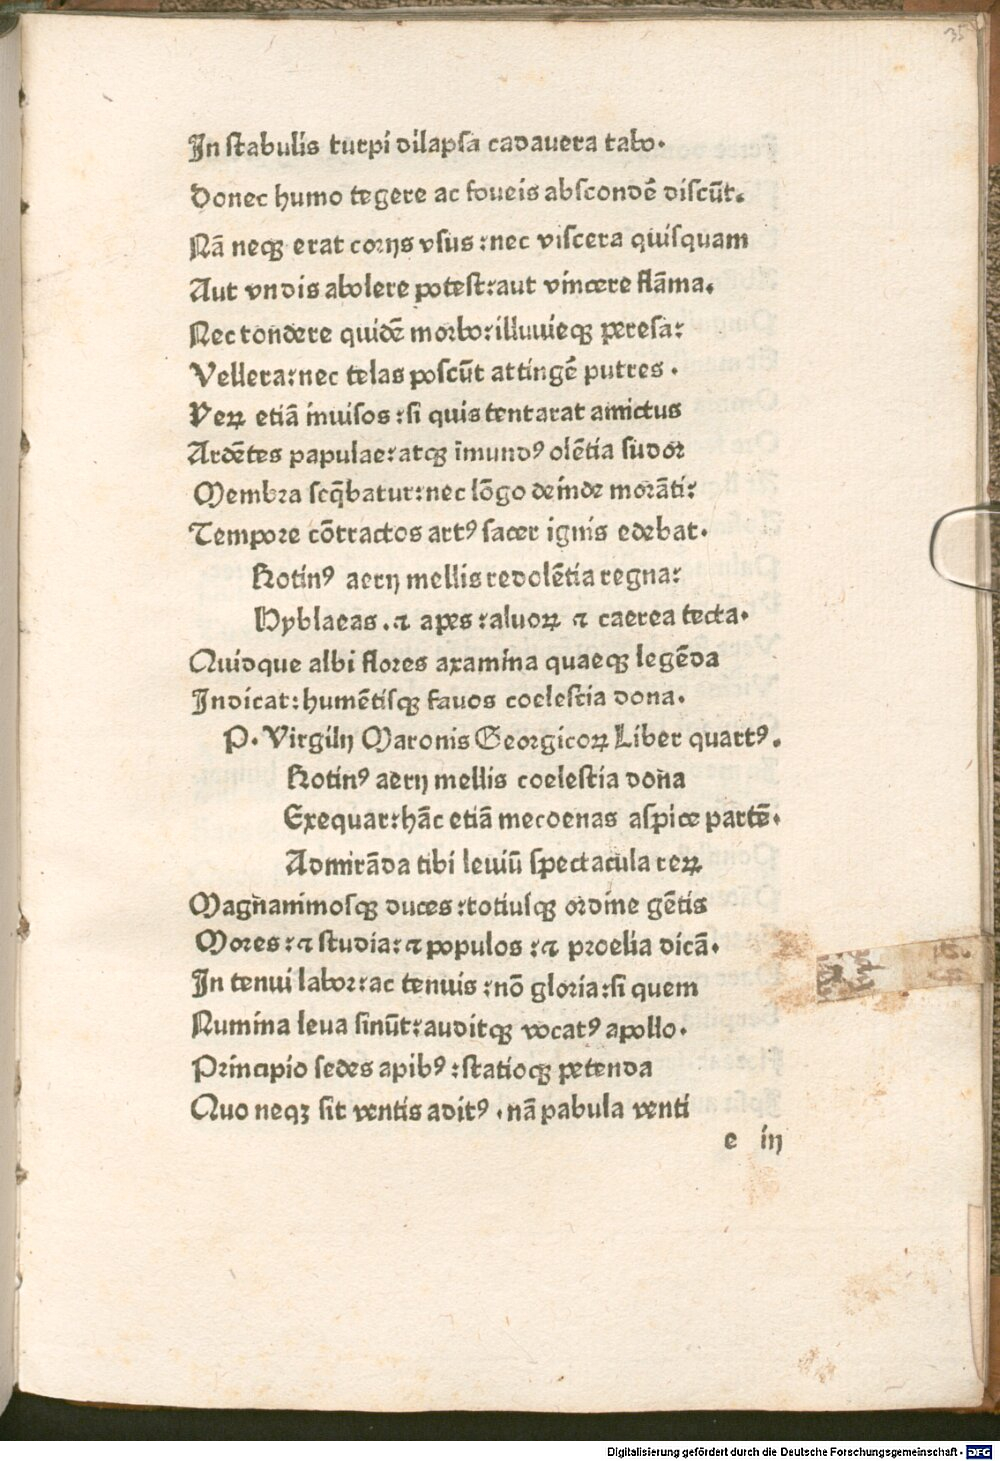 35
In stabulis turpi dilapsa cadauera tabo.
Donec humo tegere ac foueis abscondē discūt.
Nā neqꝫ erat corijs vsus : nec viscera quisquam
Aut vndis abolere potest : aut vincere flāma.
Nec tondere quidē morbo : illuuieqꝫ peresa :
Vellera : nec telas poscūt attingē putres .
Veꝝ etiā inuisos : si quis tentarat amictus
Ardētes papulae : atqꝫ īmundꝰ olētia sudor
Membra seq̄batur : nec lōgo deinde morāti :
Tempore cōtractos artꝰ sacer ignis edebat.
Rotinꝰ aerij mellis redolētia regna :
Hyblaeas . ⁊ apes : aluoꝝ ⁊ caerea tecta.
Quidque albi flores axamina quaeqꝫ legēda
Indicat : humētisqꝫ fauos coelestia dona.
P. Virgilij Maronis Georgicoꝝ Liber quartꝰ.
Rotinꝰ aerij mellis coelestia dona
Exequar : hāc etiā mecoenas aspice partē.
Admirāda tibi leuiū spectacula reꝝ
Magn̄animosqꝫ duces : totiusqꝫ ordine gētis
Mores : ⁊ studia : ⁊ populos : ⁊ proelia dicā.
In tenui labor : ac tenuis : nō gloria : si quem
Numina leua sinūt : auditqꝫ vocatꝰ apollo.
Principio sedes apibꝰ : statioqꝫ petenda
Quo neqꝫ sit ventis aditꝰ . nā pabula venti
e iij
Digitalisierung gefördert durch die Deutsche Forschungsgemeinschaft - DFG